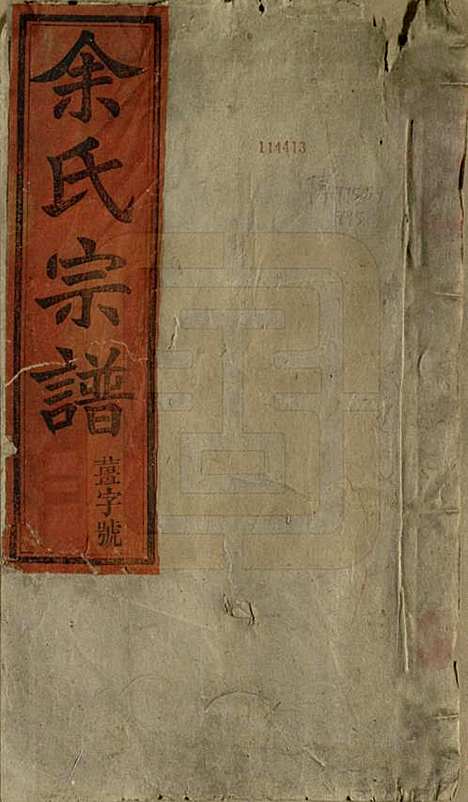 余氏宗譜
薑字號
111413